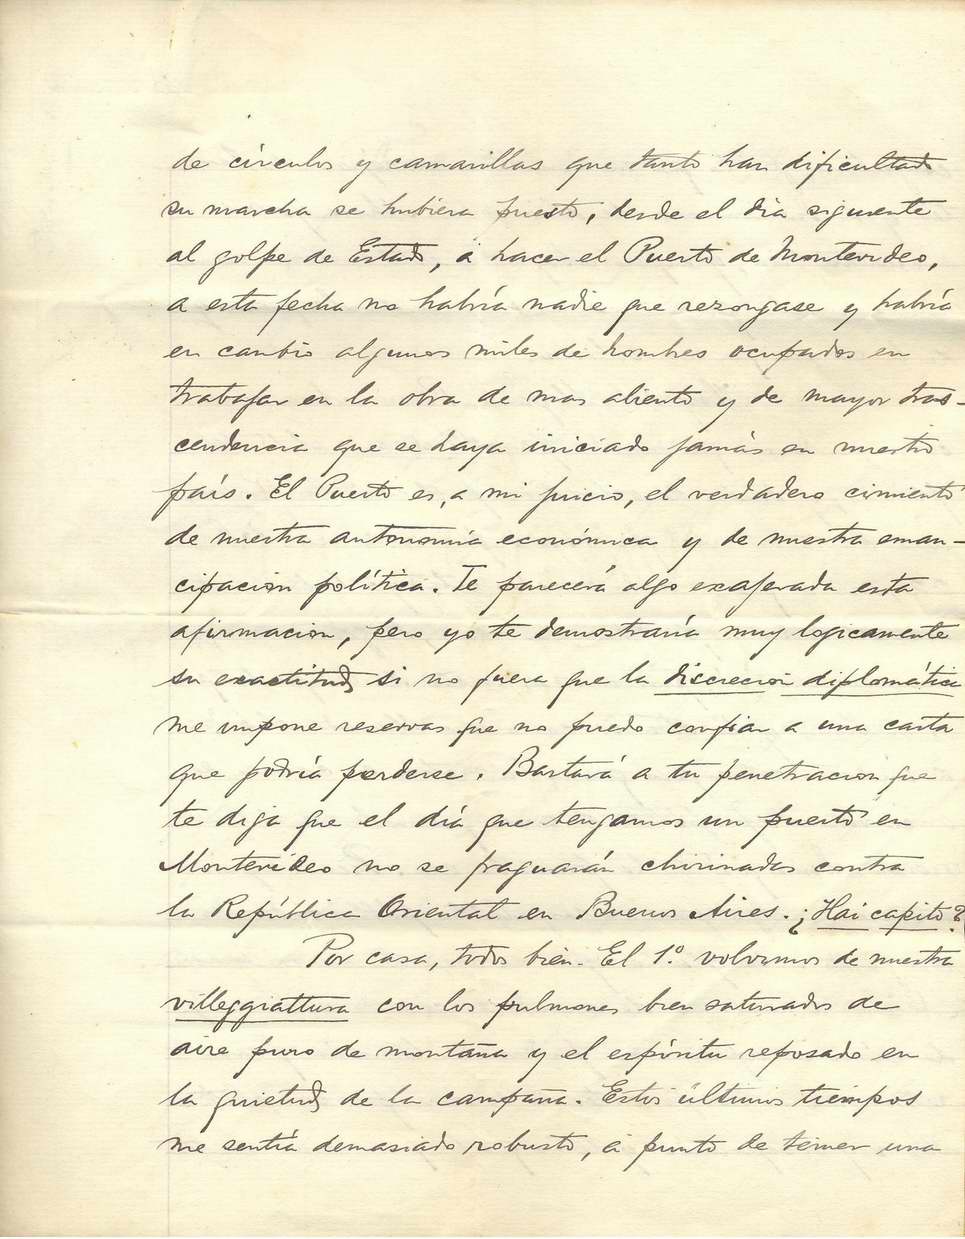 de círculos y camarillas que tanto han dificultado
su marcha se hubiera puesto, desde el dia siguiente
al golpe de Estado, á hacer el Puerto de Montevideo,
a esta fecha no habría nadie que rezongase y habría
en cambio algunos miles de hombres ocupados en
trabajar en la obra de mas aliento y de mayor tras-
cendencia que se haya iniciado jamás en nuestro
país. El Puerto es, a mi juicio, el verdadero cimiento
de nuestra autonomía económica y de nuestra eman-
cipacion política. Te parecerá algo exajerada esta
afirmacion, pero yo te demostraría muy logicamente
su exactitud, si no fuera que la discrecion diplomática
me impone reservas que no puedo confiar a una carta
que podría perderse. Bastará a tu penetracion que
te diga que el día que tengamos un puerto en
Montevideo no se fraguarán chirinadas contra
la República Oriental en Buenos Aires. ¿Hai capito?
Por casa, todos bien. El 1.º volvimos de nuestra
villeggiattura con los pulmones bien saturados de
aire puro de montaña y el espíritu reposado en
la quietud de la campaña. Estos últimos tiempos
me sentía demasiado robusto, á punto de temer una